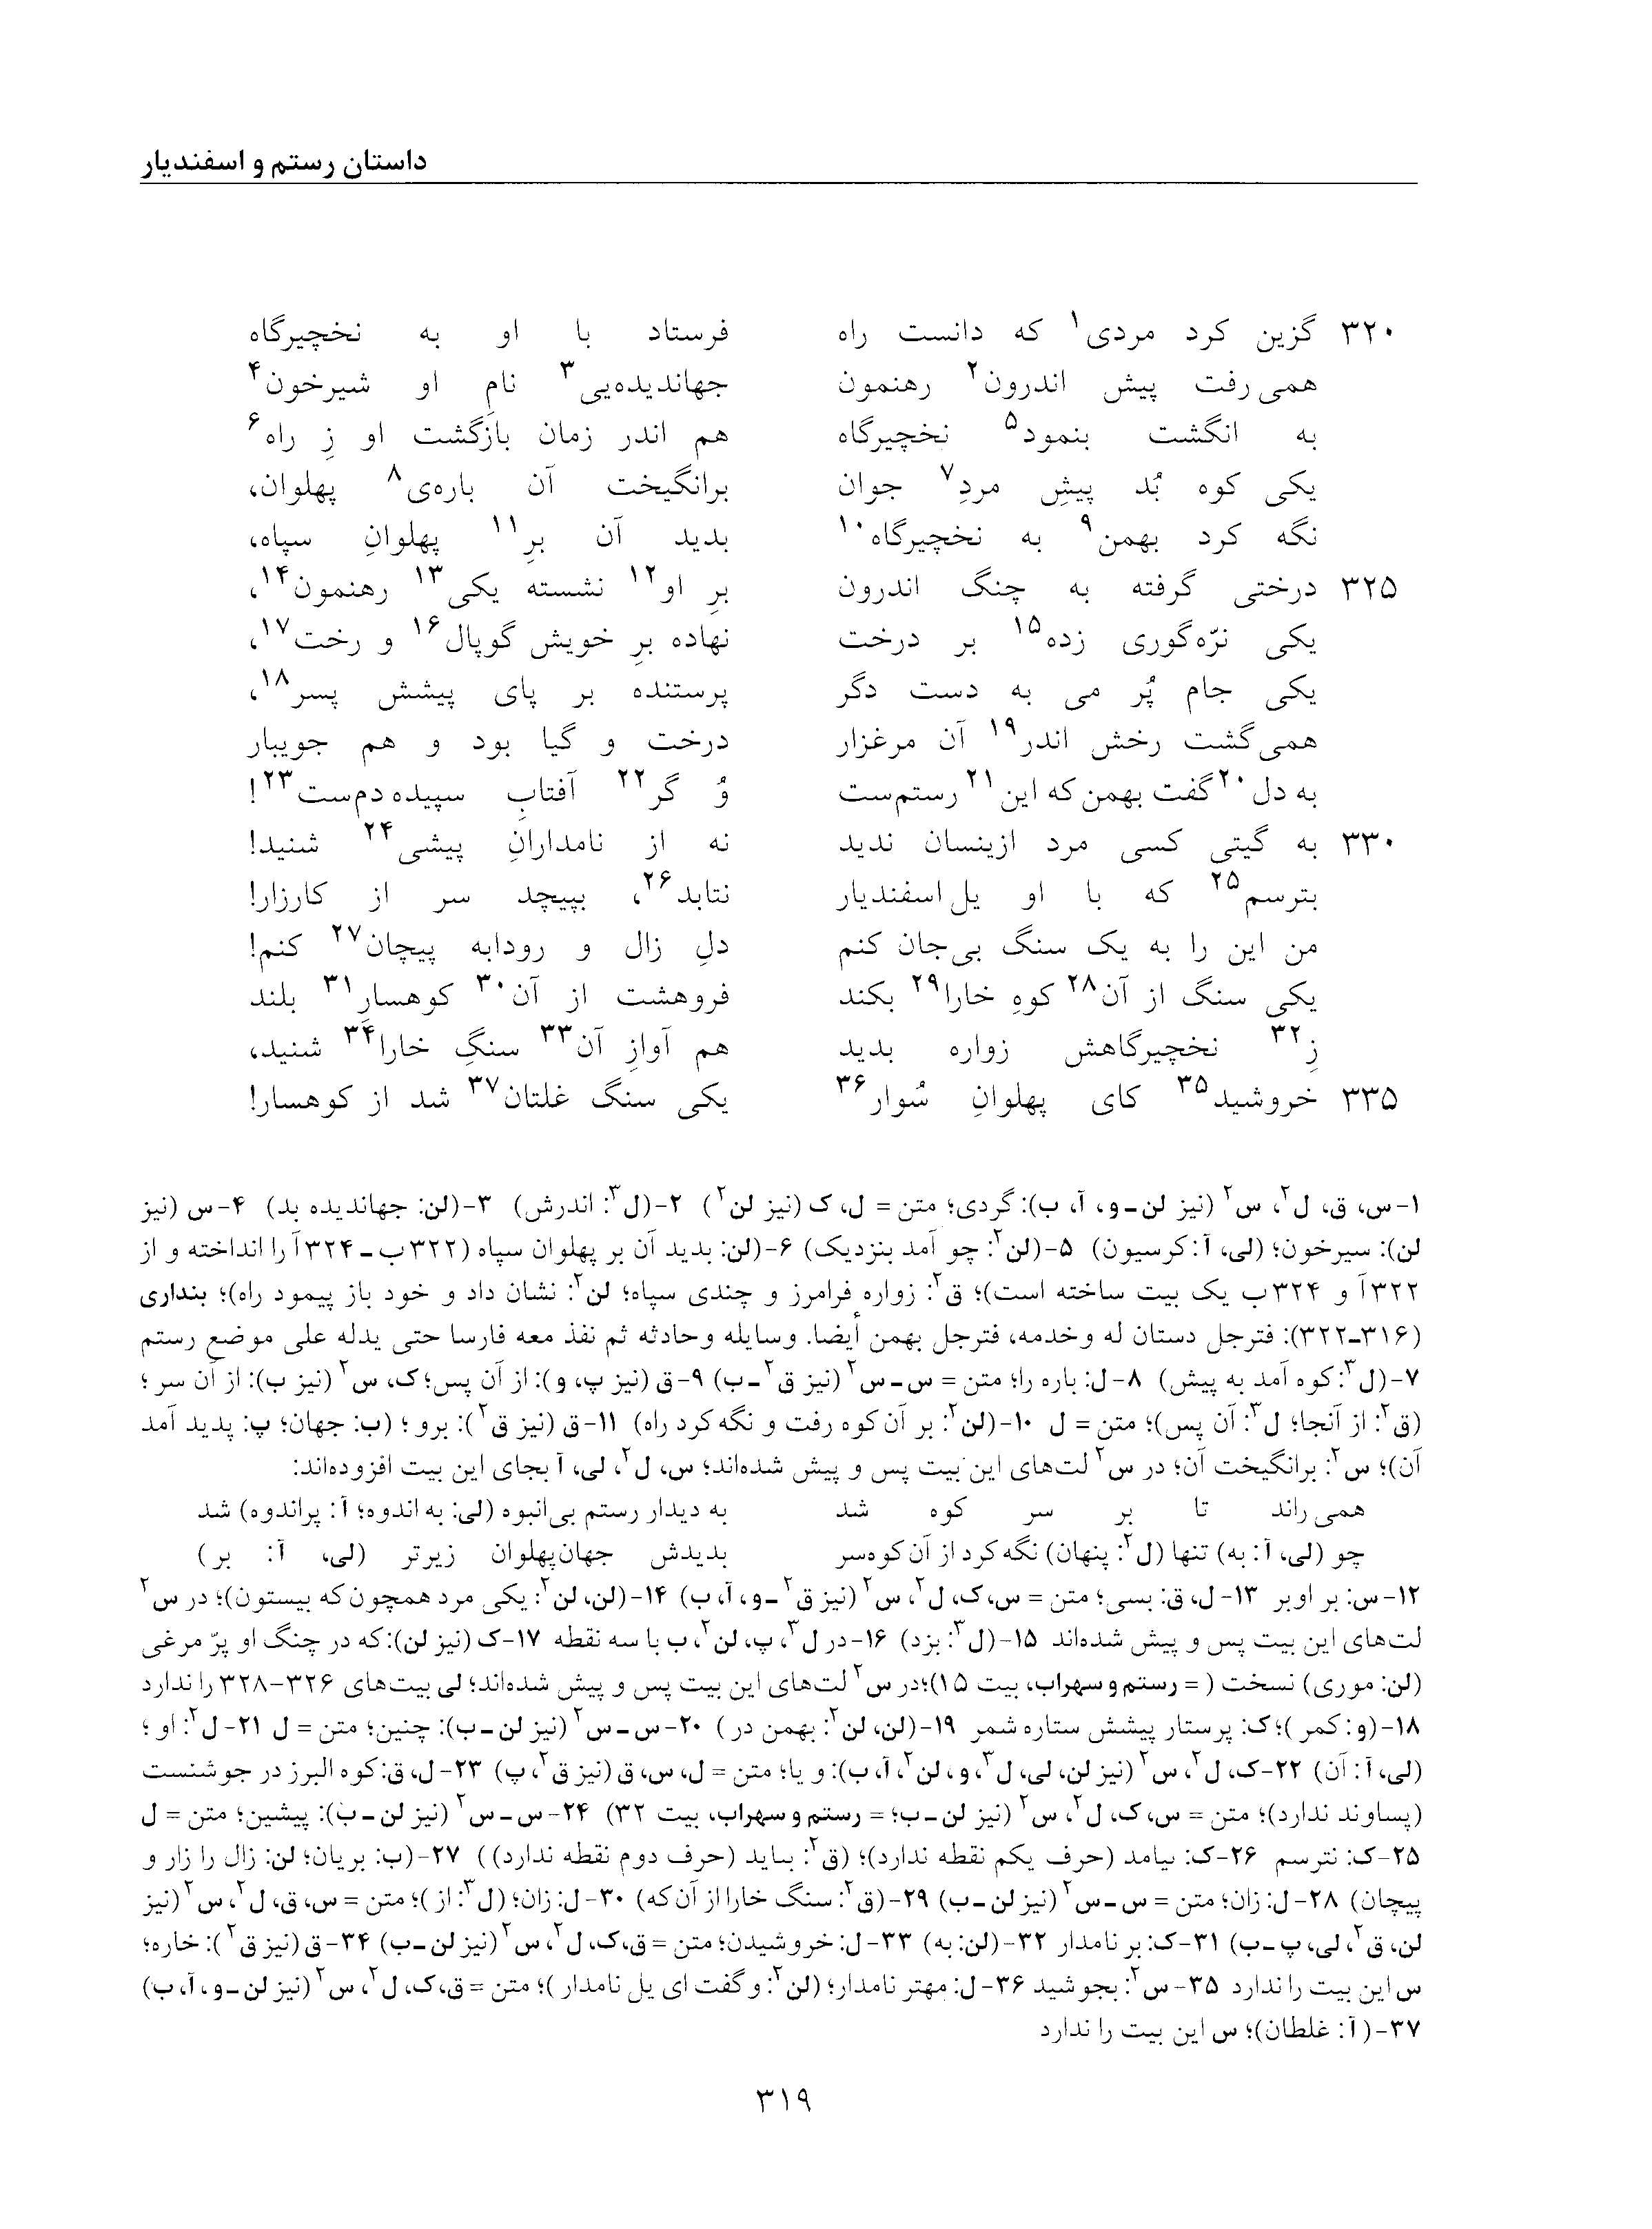 داستان رستم و اسفندیار
۳۲۰ گزین کرد مردی۱ که دانست راه فرستاد با او به نخچیرگاه
همی‌رفت پیش اندرون۲ رهنمون جهاندیده‌یی۳ نامِ او شیرخون۴
به انگشت بنمود۵ نخچیرگاه هم اندر زمان بازگشت او زِ راه۶
یکی کوه بُد پیشِ مردِ۷ جوان برانگیخت آن باره‌ی۸ پهلوان،
نگه کرد بهمن۹ به نخچیرگاه۱۰ بدید آن برِ۱۱ پهلوانِ سپاه،
۳۲۵ درختی گرفته به چنگ اندرون برِ او۱۲ نشسته یکی۱۳ رهنمون۱۴،
یکی نرّه‌گوری زده۱۵ بر درخت نهاده برِ خویش گوپال۱۶ و رخت۱۷،
یکی جام پُر می به دست دگر پرستنده بر پای پیشش پسر۱۸،
همی‌گشت رخش اندر۱۹ آن مرغزار درخت و گیا بود و هم جویبار
به دل۲۰ گفت بهمن که این۲۱ رستم‌ست وُ گر۲۲ آفتابِ سپیده‌دم‌ست۲۳!
۳۳۰ به گیتی کسی مرد ازینسان ندید نه از نامدارانِ پیشی۲۴ شنید!
بترسم۲۵ که با او یل اسفندیار نتابد۲۶، بپیچد سر از کارزار!
من این را به یک سنگ بی‌جان کنم دلِ زال و رودابه پیچان۲۷ کنم!
یکی سنگ از آن۲۸ کوهِ خارا۲۹ بکند فروهشت از آن۳۰ کوهسارِ۳۱ بلند
زِ۳۲ نخچیرگاهش زواره بدید هم آوازِ آن۳۳ سنگِ خارا۳۴ شنید،
۳۳۵ خروشید۳۵ کای پهلوانِ سُوار۳۶ یکی سنگ غلتان۳۷ شد از کوهسار!
۱-س، ق، ل۲، س۲ (نیز لن-و، آ، ب): گردی؛ متن = ل، ک (نیز لن۲) ۲-(ل۳: اندرش) ۳-(لن: جهاندیده بد) ۴-س (نیز
لن): سیرخون؛ (لی، آ: کرسیون) ۵-(لن۲: چو آمد بنزدیک) ۶-(لن: بدید آن بر پهلوان سپاه (۳۲۲ب-۳۲۴آ را انداخته و از
۳۲۲آ و ۳۲۴ب یک بیت ساخته است)؛ ق۲: زواره فرامرز و چندی سپاه؛ لن۲: نشان داد و خود باز پیمود راه)؛ بنداری
(۳۱۶-۳۲۲): فترجل دستان له وخدمه، فترجل بهمن أیضا. وسایله وحادثه ثم نفذ معه فارسا حتی یدله علی موضع رستم
۷-(ل۳: کوه آمد به پیش) ۸-ل: باره را؛ متن = س-س۲ (نیز ق۲-ب) ۹-ق (نیز پ، و): از آن پس؛ ک، س۲ (نیز ب): از آن سر؛
(ق۲: از آنجا؛ ل۳: آن پس)؛ متن = ل ۱۰-(لن۲: بر آن کوه رفت و نگه کرد راه) ۱۱-ق (نیز ق۲): برو؛ (ب: جهان؛ پ: پدید آمد
آن)؛ س۲: برانگیخت آن؛ در س۲ لت‌های این بیت پس و پیش شده‌اند؛ س، ل۲، لی، آ بجای این بیت افزوده‌اند:
همی‌راند تا بر سر کوه شد به دیدار رستم بی‌انبوه (لی: به اندوه؛ آ: پراندوه) شد
چو (لی، آ: به) تنها (ل۲: پنهان) نگه کرد از آن کوه‌سر بدیدش جهان‌پهلوان زیرتر (لی، آ: بر)
۱۲-س: بر اوبر ۱۳-ل، ق: بسی؛ متن = س، ک، ل۲، س۲ (نیز ق۲-و، آ، ب) ۱۴-(لن، لن۲: یکی مرد همچون که بیستون)؛ در س۲
لت‌های این بیت پس و پیش شده‌اند ۱۵-(ل۳: بزد) ۱۶-در ل۳، پ، لن۲، ب با سه نقطه ۱۷-ک (نیز لن): که در چنگ او پرّ مرغی
(لن: موری) نسخت (= رستم و سهراب، بیت ۱۵)؛ در س۲ لت‌های این بیت پس و پیش شده‌اند؛ لی بیت‌های ۳۲۶-۳۲۸ را ندارد
۱۸-(و: کمر)؛ ک: پرستار پیشش ستاره شمر ۱۹-(لن، لن۲: بهمن در) ۲۰-س-س۲ (نیز لن-ب): چنین؛ متن = ل ۲۱-ل۲: او؛
(لی، آ: آن) ۲۲-ک، ل۲، س۲ (نیز لن، لی، ل۳، و، لن۲، آ، ب): و یا؛ متن = ل، س، ق (نیز ق۲، پ) ۲۳-ل، ق: کوه البرز در جوشنست
(پساوند ندارد)؛ متن = س، ک، ل۲، س۲ (نیز لن-ب؛ = رستم و سهراب، بیت ۳۲) ۲۴-س-س۲ (نیز لن-ب): پیشین؛ متن = ل
۲۵-ک: نترسم ۲۶-ک: نیامد (حرف یکم نقطه ندارد)؛ (ق۲: بباید (حرف دوم نقطه ندارد)) ۲۷-(ب: بریان؛ لن: زال را زار و
پیچان) ۲۸-ل: زان؛ متن = س-س۲ (نیز لن-ب) ۲۹-(ق۲: سنگ خارا از آن که) ۳۰-ل: زان؛ (ل۳: از)؛ متن = س، ق، ل۲، س۲ (نیز
لن، ق۲، لی، پ-ب) ۳۱-ک: بر نامدار ۳۲-(لن: به) ۳۳-ل: خروشیدن؛ متن = ق، ک، ل۲، س۲ (نیز لن-ب) ۳۴-ق (نیز ق۲): خاره؛
س این بیت را ندارد ۳۵-س۲: بجوشید ۳۶-ل: مهتر نامدار؛ (لن۲: و گفت ای یل نامدار)؛ متن = ق، ک، ل۲، س۲ (نیز لن-و، آ، ب)
۳۷-(آ: غلطان)؛ س این بیت را ندارد
۳۱۹